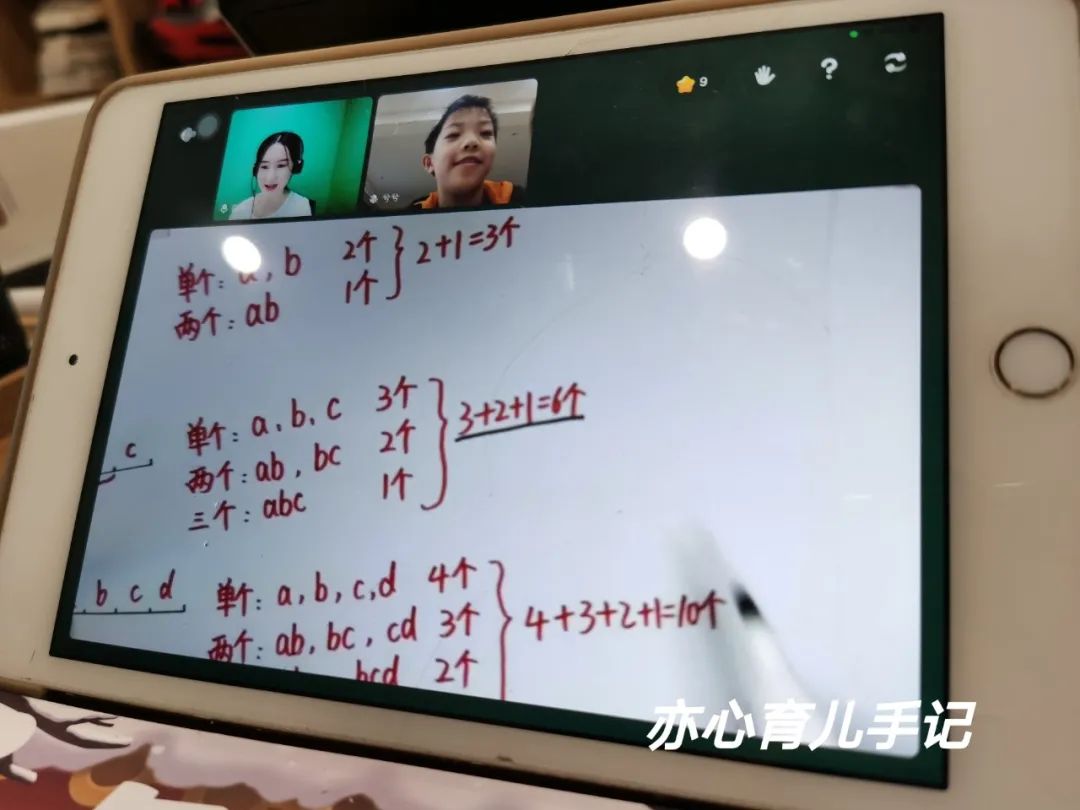 9
?
兮兮
单个：a，b 2个
两个：ab 1个
2+1=3个
c
单个：a、b、c 3个
两个：ab，bc 2个
三个：abc 1个
3+2+1=6个
b c d
单个：a，b，c，d 4个
两个：ab，bc，cd 3个
bcd 2个
4+3+2+1=10个
亦心育儿手记